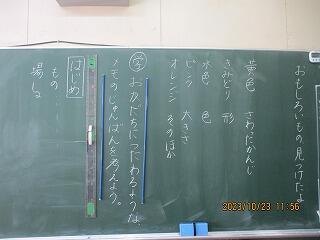 おもしろいもの、見つけたよ
黄色 さわったかんじ
きみどり 形
水色 色
ピンク 大きさ
オレンジ そのほか
学 お友だちにつたわるような、
メモのじゅんばんを考えよう。
はじめ
もの
場しょ
2023/10/23 11:56